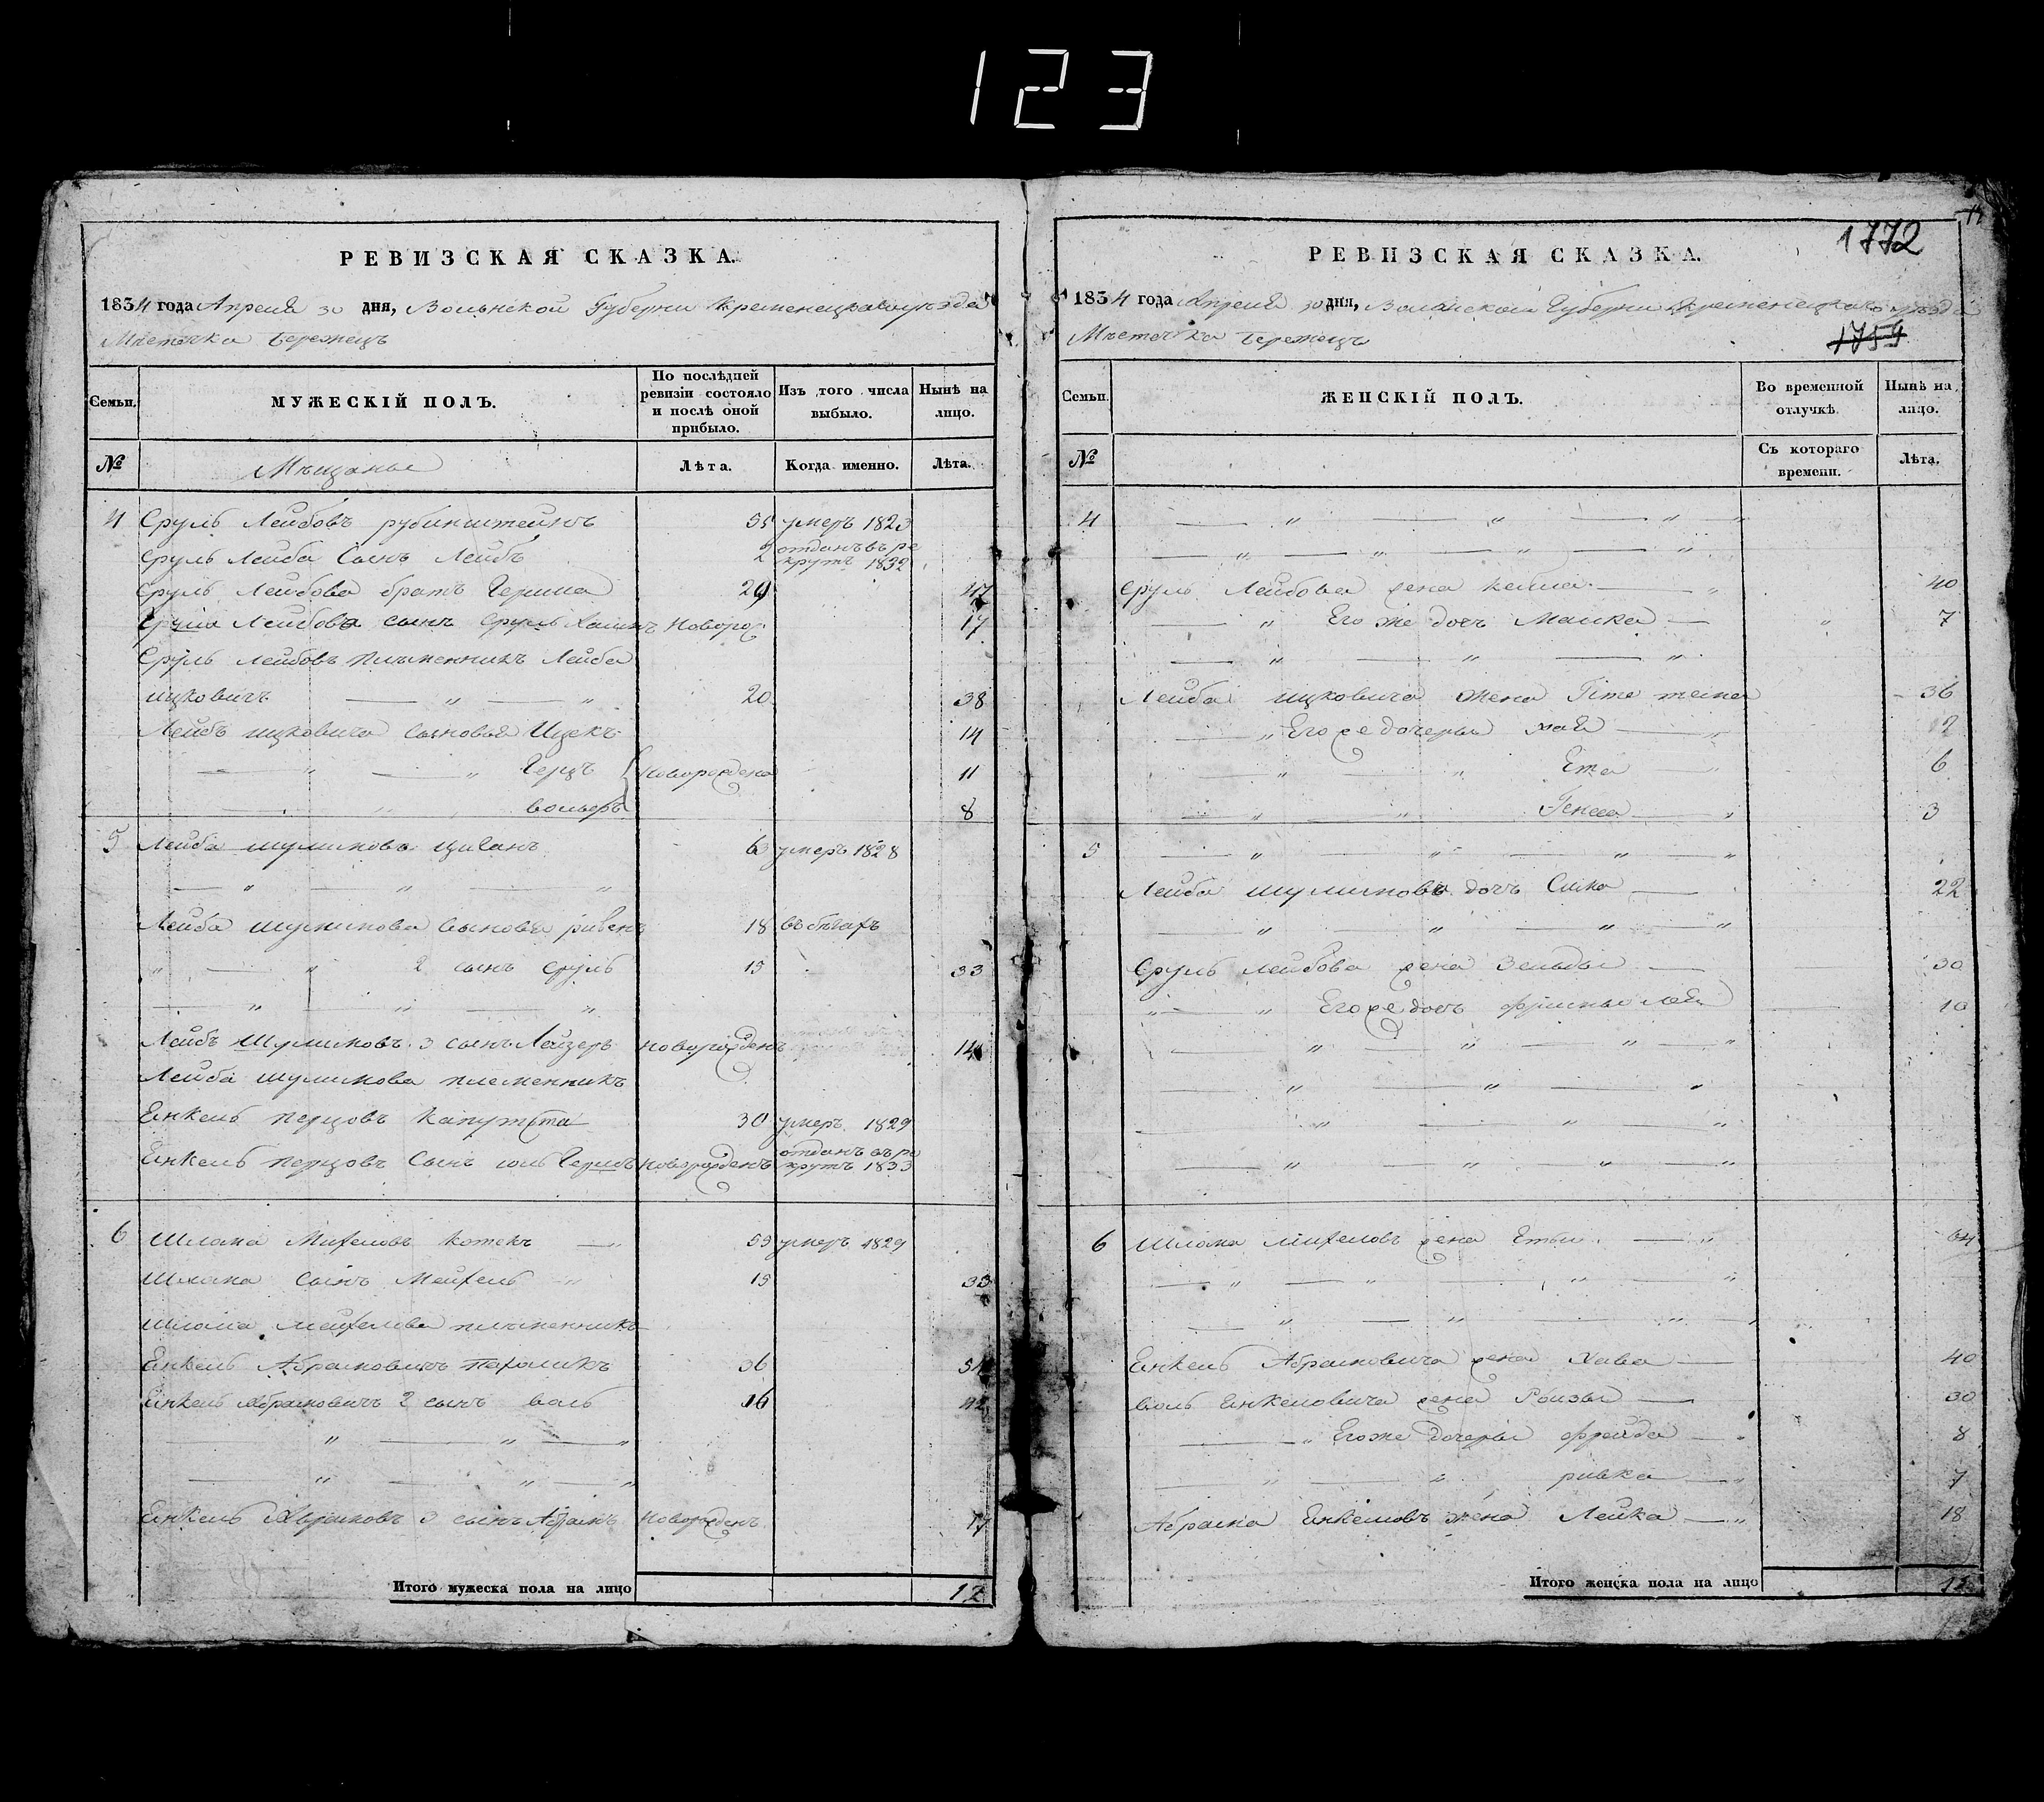 123
РЕВИЗСКАЯ СКАЗКА.
1834 года Апреля 30 дня, Волынской Губерни Кременецкаго уѣзда
Мѣстечка Бережецъ
Семьи.
МУЖЕСКІЙ ПОЛЪ.
По послѣдней ревизіи состояло и послѣ оной прибыло.
Изъ того числа выбыло.
Нынѣ на лицо.
№
Мѣщаныи
Лѣта.
Когда именно.
Лѣта.
4 Сруль Лейбовъ рубинштейнъ 55 умеръ 1823
Сруль Лейба Сынъ Лейбъ 2 отданъ въ рекрутъ 1832
Сруль Лейбова братъ Гершка 29 47
Лейбова сынъ Сруль Хаимъ Новорож 17
Сруль Лейбовъ племенникъ Лейба
ицковичъ — " — " 20 38
Лейбъ ицковича сыновья Ицекъ 14
— " — " Герцъ Новорождена 11
— " вольеръ 8
5 Лейба шулимовъ циганъ 63 умеръ 1828
— " — " — "
Лейба шулимова сыновья ривенъ 18 въ бѣгахъ
" — " 2 сынъ сруль 15 33
— " — " — "
Лейбъ Шулимовъ 3 сынъ Лейзеръ новорожденъ 14
Лейба шулимова племенникъ
Енкель перцовъ Капуста 30 умеръ 1829
Енкель перцовъ Сынъ Гершъ новорожденъ отданъ въ рекрутъ 1833
6 Шлома Михелевъ котекъ — 59 умеръ 1829
Шлома Сынъ Мейхель " 15 33
Шлома мейхелева племенникъ
Енкель Абрамовичъ 36 54
Енкель Абрамовичъ 2 сынъ воль 16 42
— " — " — "
— " — " — "
Енкель 3 сынъ Абрамъ новорожденъ 17
Итого мужеска пола на лицо 12
1772
РЕВИЗСКАЯ СКАЗКА.
1834 года Апреля 30 дня, Волынской Губерни Кременецкаго уѣзда
Мѣстечка Бережецъ
1754
Семьи.
ЖЕНСКІЙ ПОЛЪ.
Во временной отлучкѣ.
Нынѣ на лицо.
№
Съ котораго времени.
Лѣта.
4 — " — " — " — "
— " — " — " — "
Сруль Лейбова жена кейла — " 40
— " Его же дочъ Малка — " 7
— " — " — "
Лейба ицковича жена 36
— " Его же дочеры хая — " 2
— " — " Ета — " 6
— " — " Генсея — " 3
5 — " — " — " — "
Лейба шулимовъ дочъ Сима — 22
— " — " — " — "
Сруль лейбова жена Зельды — 30
" — " Его же дочъ 10
— " — " — " — "
— " — " — "
— " — " — "
— " — " — " — "
6 Шлома михелевъ жена Етьи — " 64
— " — " — " — "
— " — " — " — "
Енкель Абрамовича жена Хава — 40
воль Енкеловича жена Роизы — 30
— " Его же дочеры фрейда — " 8
— " — " ривка — " 7
Абрама Енкелювъ жена Лейка — " 18
Итого женска пола на лицо